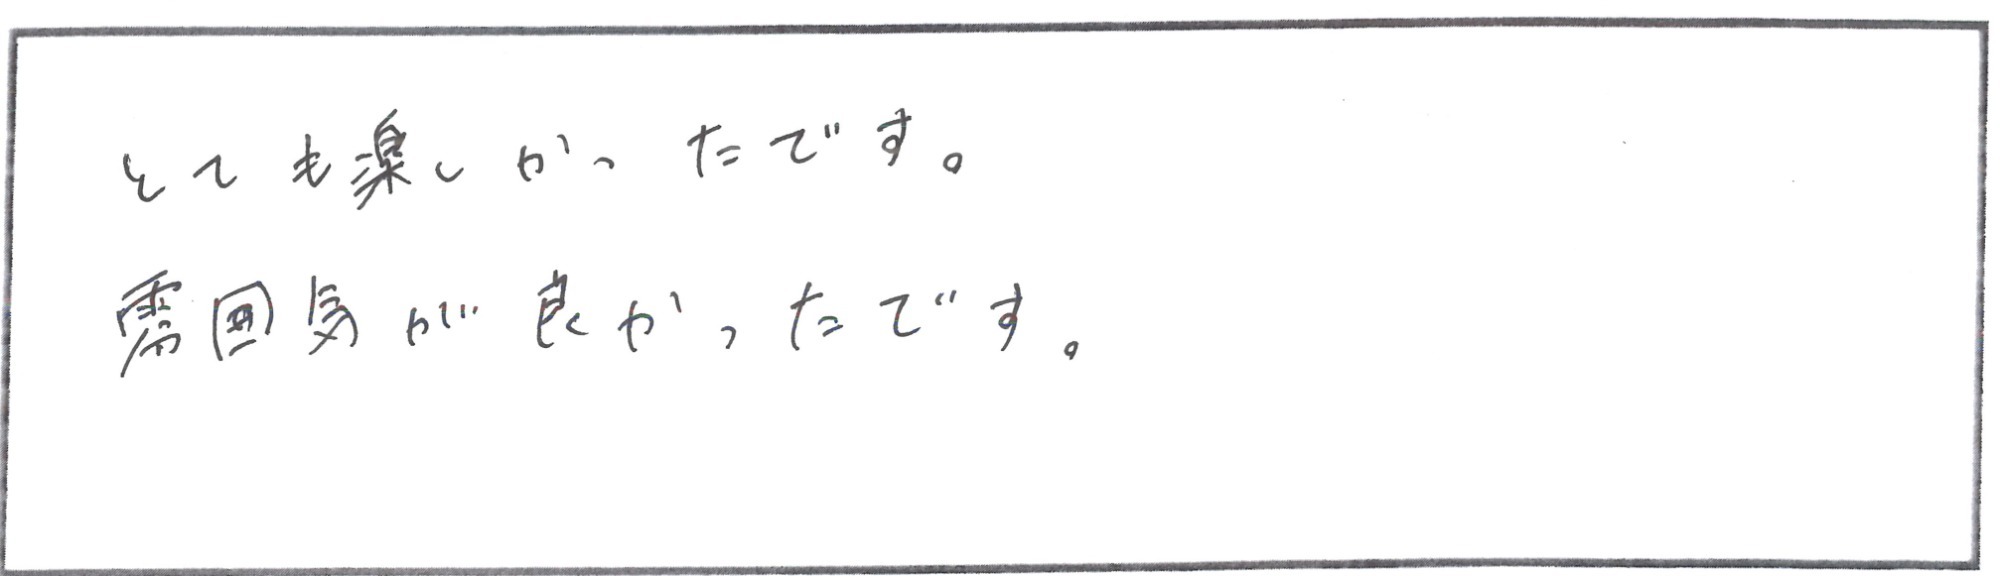 とても楽しかったです。
雰囲気が良かったです。